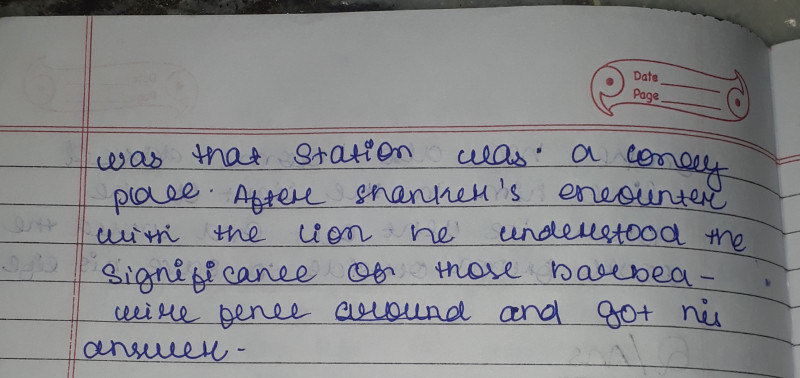 Date
Page
was that station was a loney
place. After shanker's encounter
with the lion he understood the
significance of those barbea-
wire fence around and got his
answer.